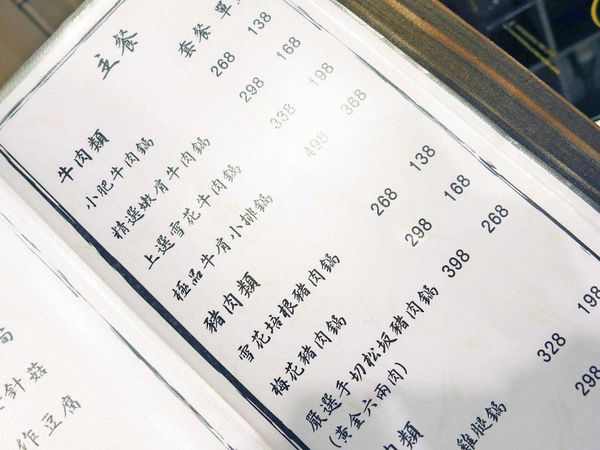 主餐 套餐 單
牛肉類
小肥牛肉鍋 268 138
精選嫩肩牛肉鍋 298 168
上選雪花牛肉鍋 338 198
極品牛肩小排鍋 498 368
豬肉類
雪花培根豬肉鍋 268 138
梅花豬肉鍋 298 168
嚴選手切松坂豬肉鍋 398 268
(黃金六兩肉)
肉類
雞腿鍋 328 198
298
針菇
作豆腐